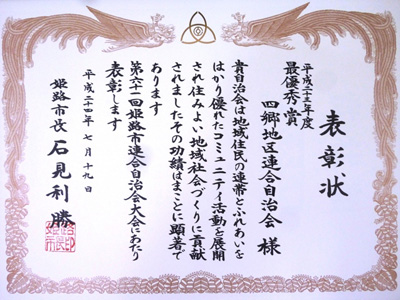 表彰状
平成二十三年度
最優秀賞
四郷地区連合自治会 様
貴自治会は地域住民の連帯とふれあいを
はかり優れたコミュニティ活動を展開
され住みよい地域社会づくりに貢献
されましたその功績はまことに顕著で
あります
第六十一回姫路市連合自治会大会にあたり
表彰します
平成二十四年七月十九日
姫路市長 石見利勝